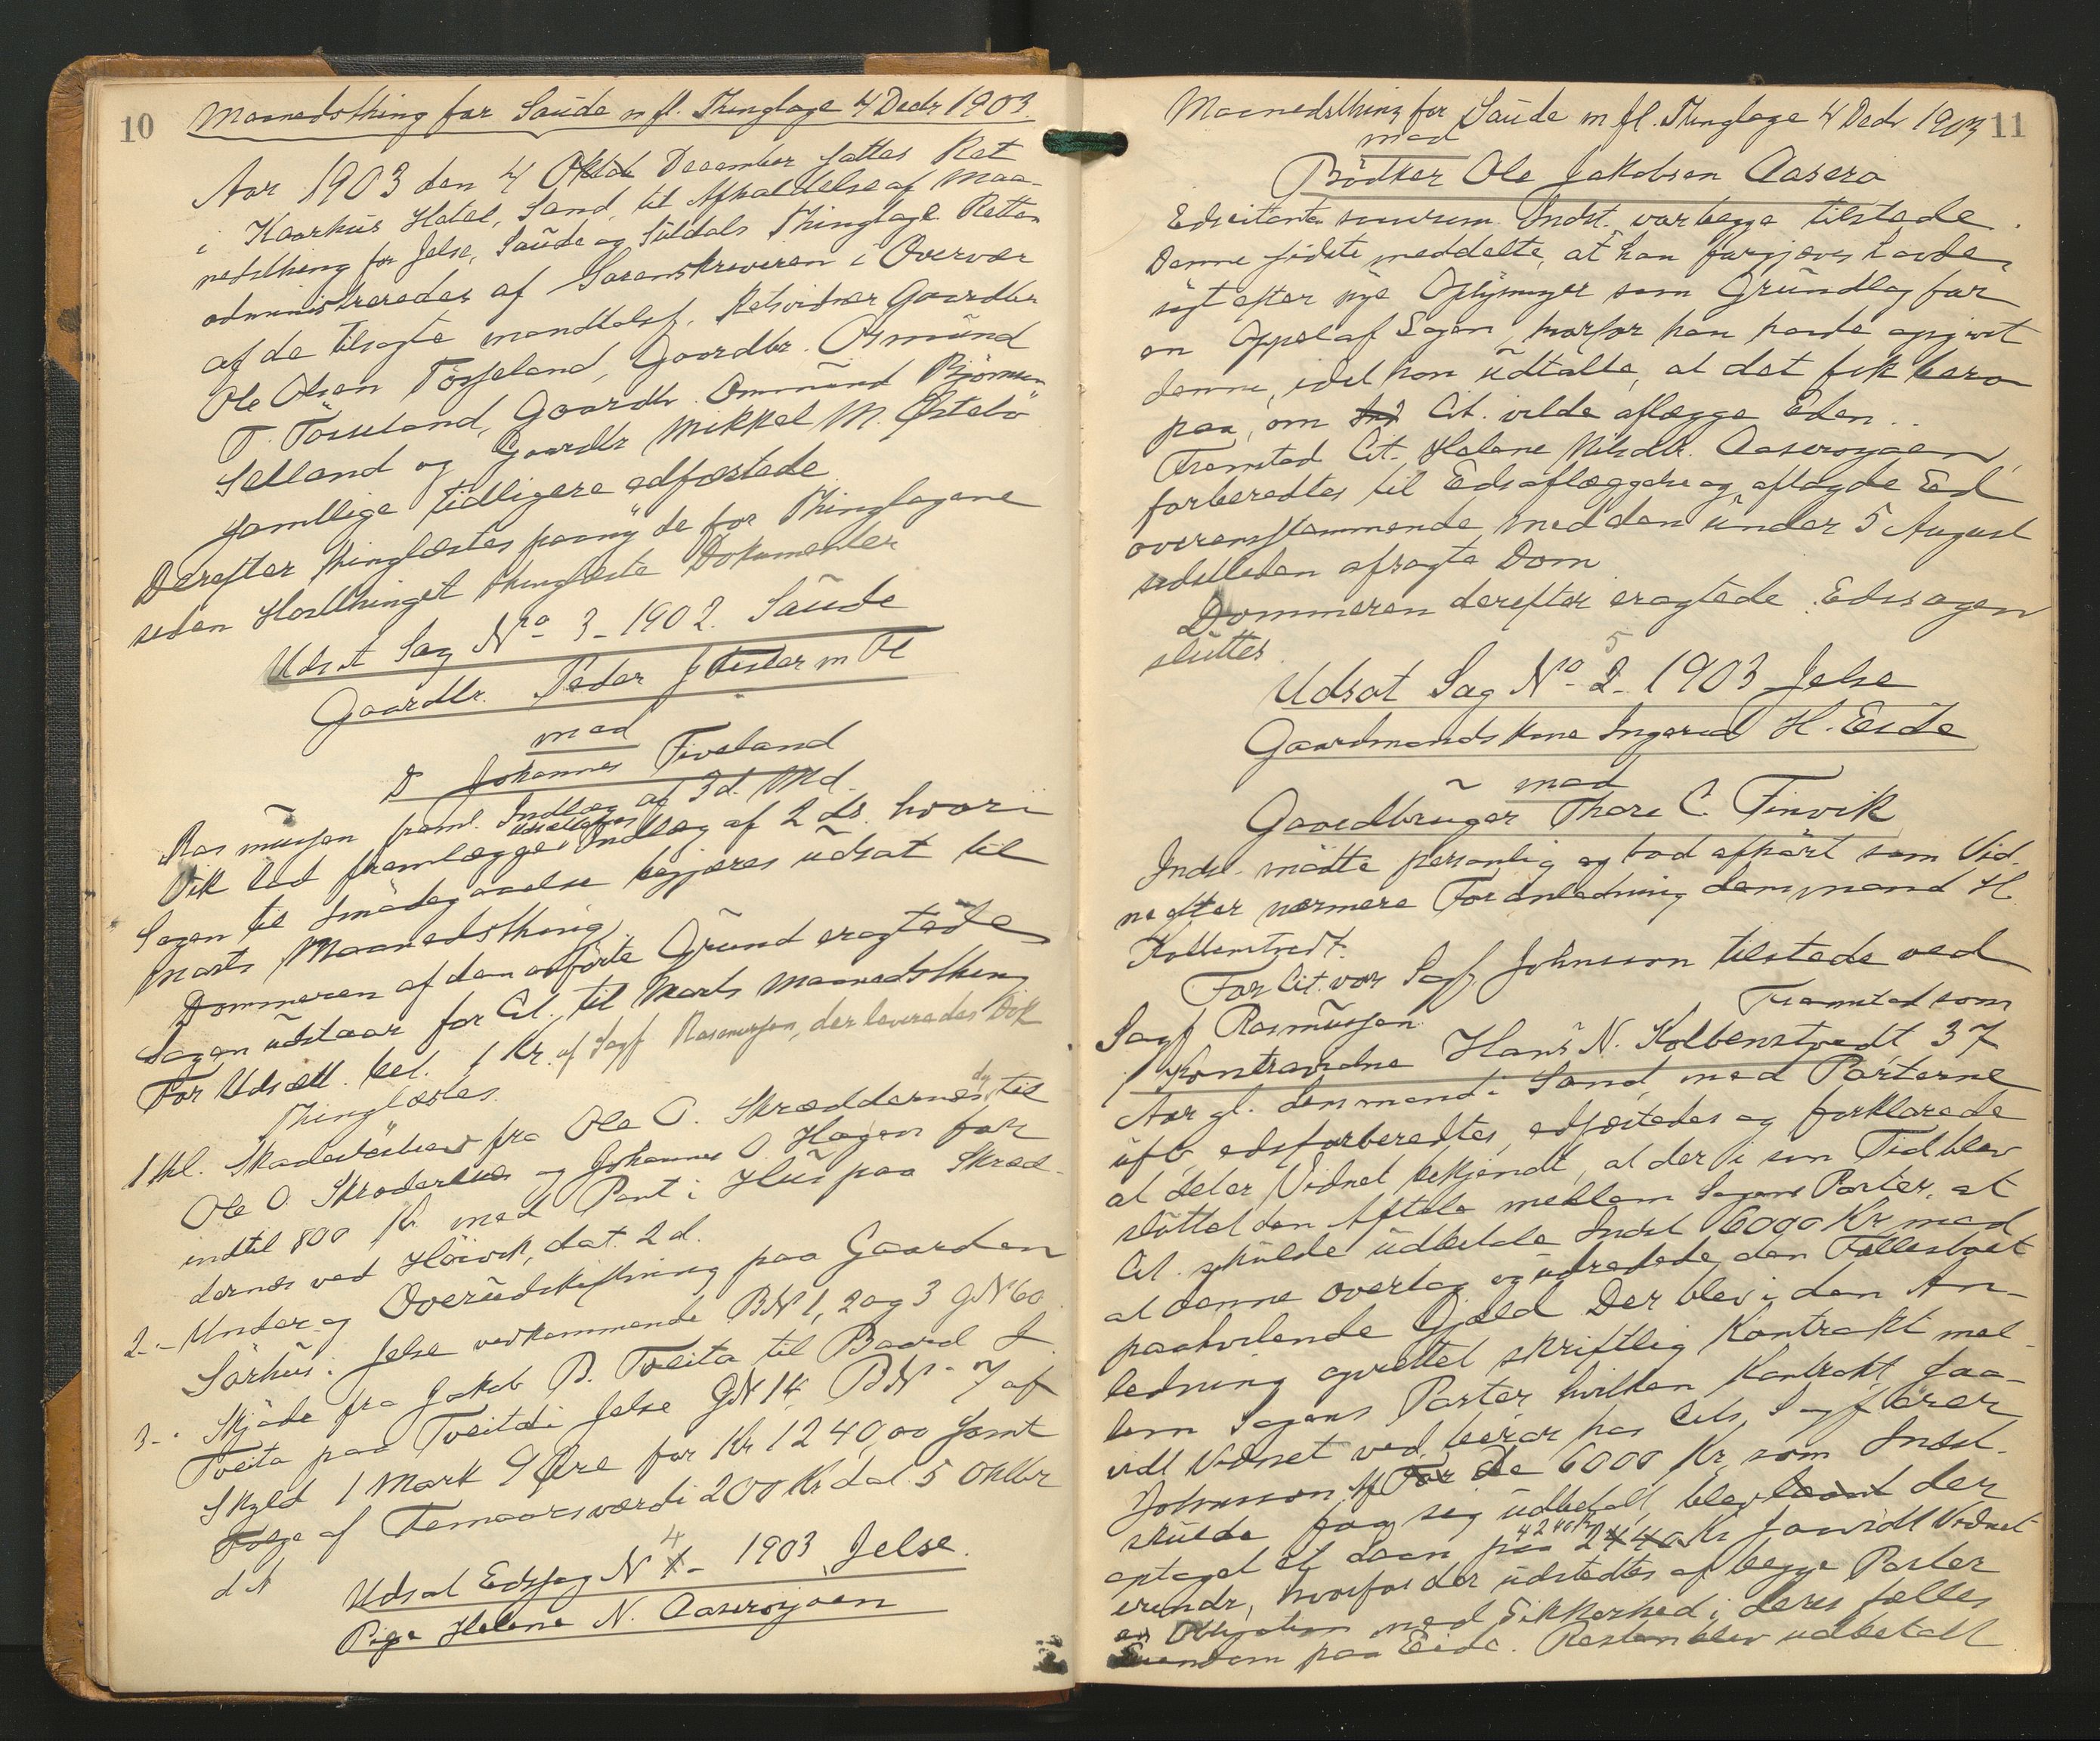 10
Maanedsthing for Saude m fl. Thinglage 4 Decbr 1903.
Aar 1903 den 4 Oktob December sattes Ret
i Kaarhus Hotel, Sand, til Afholdelse af Maa-
nedsthing for Jelse, Saude og Suldals Thinglage. Retten
administreredes af Sorenskriveren i Overvær
af de tilsagte mandtalsf. Retsvidner Gaardbr
Ole Olsen Tösseland, Gaardbr. Osmund
T. Tösseland, Gaardbr. Ommund Björnsen
Selland og Gaardbr Mikkel M. Østebö
samtlige tidligere edfæstede
Derefter thinglæstes paany de for Thinglagene
siden Hostthinget thinglæste Dokumenter
Udsat Sag No 3 - 1902. Saude
Gaardbr. Peder m Fl
mod
D Johannes Fiveland
Rasmussen freml. Indlæg af 3d. Md.
Vik lod fremlægge Indlæg af 2 ds. hvori
Sagen til Imødegaaelse begjæres udsat til
Marts Maanedsthing.
Dommeren af den anförte Grund eragtede
Sagen udstaar for Cit. til Marts Maanedsthing
For Udsætt. bet. 1 Kr. af Sagf Rasmussen, der leveredes Dok
Thinglæstes.
1 Kl. Skadesløsbrev fra Ole O. Skræddernæs til
Ole O. og Johannes O. Hagen for
indtil 800 Kr. med Pant i Hus paa Skræd-
dernæs ved Hövik, dat. 2 d.
2 - Under og Overudskiftning paa Gaarden
Sörhus i Jelse vedkommende BN 1, 2 og 3 GN 60
3 - Skjöde fra Jakob B. Tveita til Baard J.
Tveita paa Tveita i Jelse GN 14 BN 7 af
Skyld 1 Mark 9 Øre for Kr 1240,00 samt
Folge af Femaarsværdi 200 Kr dat. 5 Oktbr
d A
Udsat Edssag N 4 - 1903 Jelse.
Pige Helene N. Aaserøyaen
Maanedsthing for Saude m fl. Thinglage 4 Decbr 1903 11
mod
Bödker Ole Jakobsen Aaserø
Edscitanten saavelsom Indst. var begge tilstede.
Denne sidste meddelte, at han forgjæves havde
sögt efter nye Oplysninger som Grundlag for
en Appel af Sagen, hvorfor han havde opgivet
denne, idet han udtalte, at det fik bero
paa, om Cit. vilde aflægge Eden.
Fremstod Cit. Helene Nilsdtr. Aaserøyaen,
forberedtes til Edsaflæggelse og aflagde Ed
overensstemmende med den under 5 August
sidstleden afsagte Dom
Dommeren derefter eragtede: Edssagen
sluttes.
Udsat Sag No 5 - 1903 Jelse
Gaardmandskone Ingerid H. Eide
mod
Gaardbruger Thore C. Finvik
Indst. mödte personlig og bad afhört som Vid-
ne efter nærmere Foranledning Lensmand H.
Kolbenstvedt.
For Cit. var Sagf. Johnsson tilstede ved
Sagf Rasmussen.
Fremstod som
1 Kontravidne Hans N. Kolbenstvedt 37
Aar gl. Lensmand i Sand, med Parterne
ubs. edsforberedtes, edfæstedes og forklarede
at det er Vidnet bekjendt, at der i sin Tid blev
sluttet den Aftale mellem Sagens Parter, at
Cit. skulde udbetale Indst. 6000 Kr mod
at denne overtog og udredede den Fællesboet
paahvilende Gjæld Der blev i den An-
ledning oprettet skriftlig Kontrakt mel-
lem Sagens Parter hvilken Kontrakt, saa-
vidt Vidnet ved, beror hos Cits. Sagförer
Johnsson. Af For De 6000 Kr, som Indst.
skulde faa sig udbetalt, blev laant der
optaget et Laan paa 4240 Kr 2440 Kr saavidt Vidnet
erindr, hvorfor der udstedtes af begge Parter
en Obligation med Sikkerhed i deres fælles
Eiendom paa Eide. Resten blev udbetalt